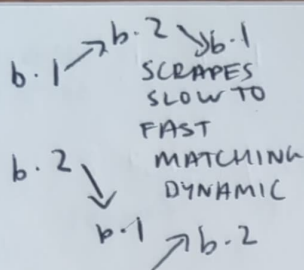 b.1 → b.2 ↘ b.1
SCRAPES
SLOW TO
FAST
MATCHING
DYNAMIC
b.2 ↘
b.1 ↗ b.2